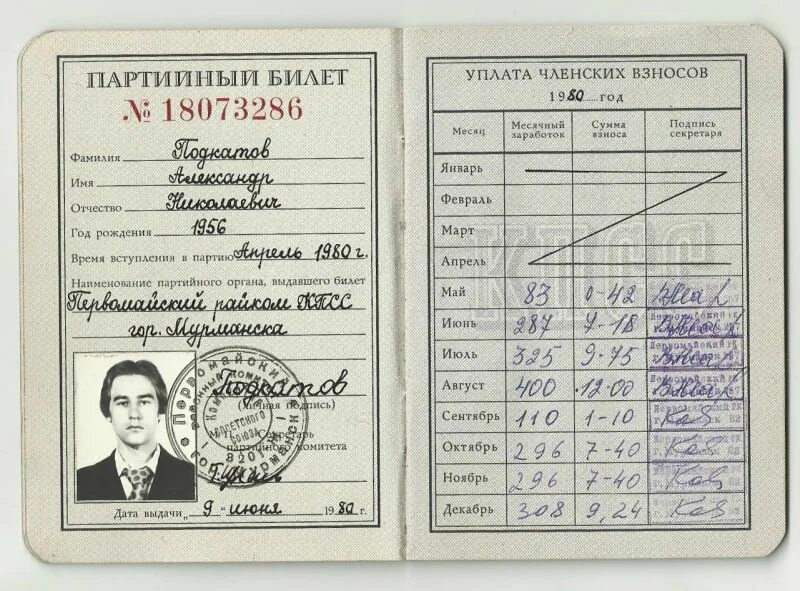 ПАРТИЙНЫЙ БИЛЕТ
№ 18073286
Фамилия Подкатов
Имя Александр
Отчество Николаевич
Год рождения 1956
Время вступления в партию Апрель 1980 г.
Наименование партийного органа, выдавшего билет
Первомайский райком КПСС
гор. Мурманска
Подкатов
(личная подпись)
М.П. Секретарь
партийного комитета
Дата выдачи „ 9 “ июня 1980 г.
УПЛАТА ЧЛЕНСКИХ ВЗНОСОВ
1980 год
Месяц Месячный заработок Сумма взноса Подпись секретаря
КПСС
Январь
Февраль
Март
Апрель
Май 83 0-42
Июнь 287 7-18
Июль 325 9-75
Август 400 12-00
Сентябрь 110 1-10
Октябрь 296 7-40
Ноябрь 296 7-40
Декабрь 308 9,24